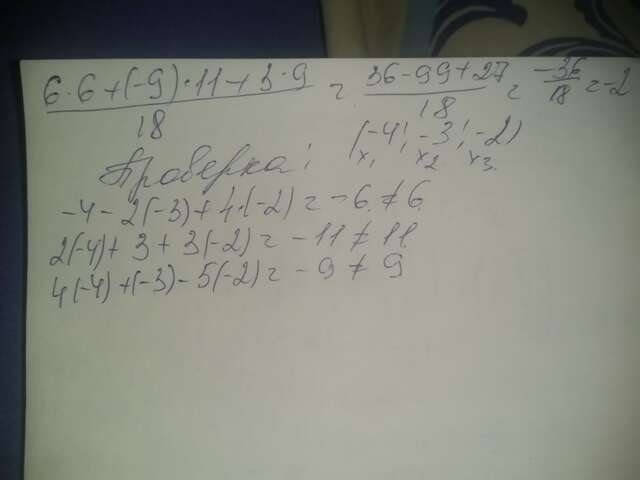 6·6+(-9)·11+3·9 / 18 = 36-99+27 / 18 = -36/18 = -2
(-4; -3; -2)
x₁ x₂ x₃.
Проверка:
-4-2(-3)+4·(-2) = -6 ≠ 6
2(-4)+3+3(-2) = -11 ≠ 11
4(-4)+(-3)-5(-2) = -9 ≠ 9